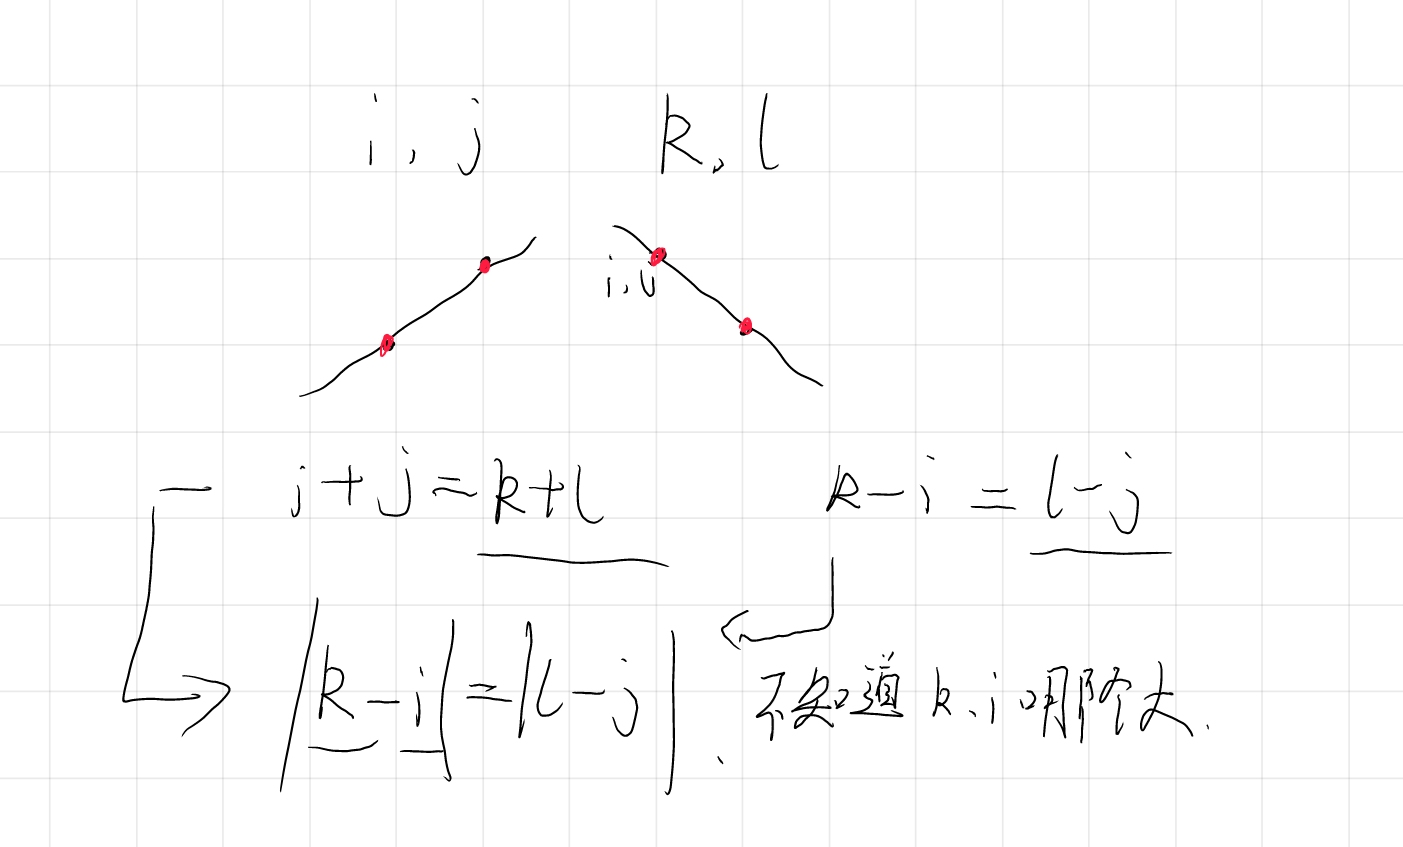 i, j k, l
i, j
— i + j = k + l k - i = l - j
|k - i| = |l - j| . 不知道 k、i 哪个大.